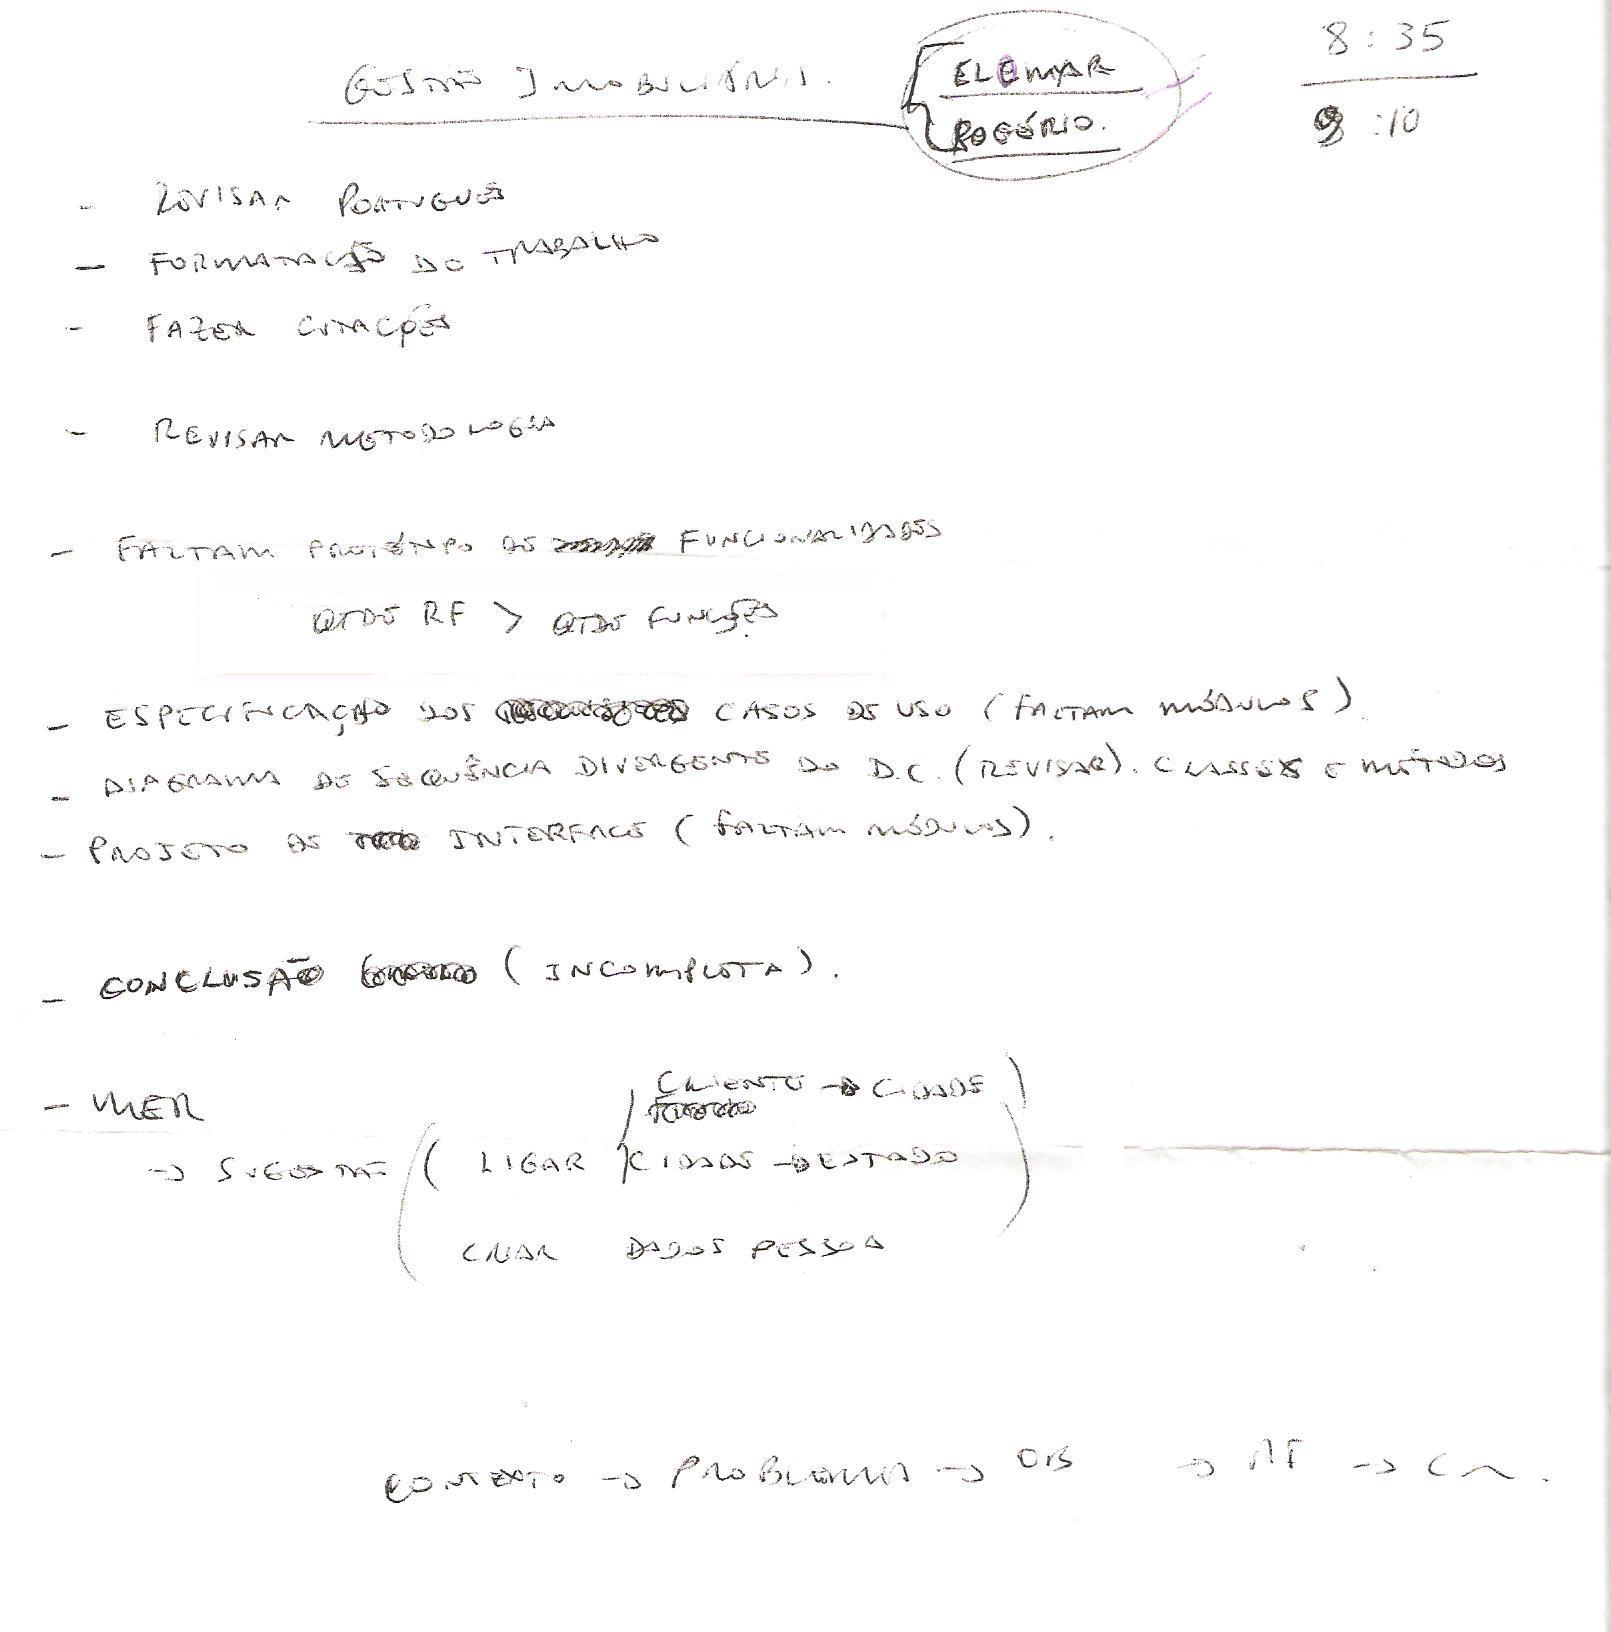 GESTÃO IMOBILIÁRIA.
ELEMAR
ROGÉRIO.
8:35
9:10
- REVISAR PORTUGUÊS
- FORMATAÇÃO DO TRABALHO
- FAZER CITAÇÕES
- REVISAR METODOLOGIA
- FALTAM PROTÓTIPO DE FUNCIONALIDADES
QTDE RF > QTDE FUNÇÕES
- ESPECIFICAÇÃO DOS CASOS DE USO (FALTAM MÓDULOS).
- DIAGRAMA DE SEQUÊNCIA DIVERGENTE DO D.C. (REVISAR). CLASSES E MÉTODOS
- PROJETO DE INTERFACE (FALTAM MÓDULOS).
- CONCLUSÃO (INCOMPLETA).
- MER
CLIENTE → CIDADE
→ SUGESTÃO ( LIGAR CIDADE → ESTADO
CRIAR DADOS PESSOA
CONTEXTO → PROBLEMA → OB → →